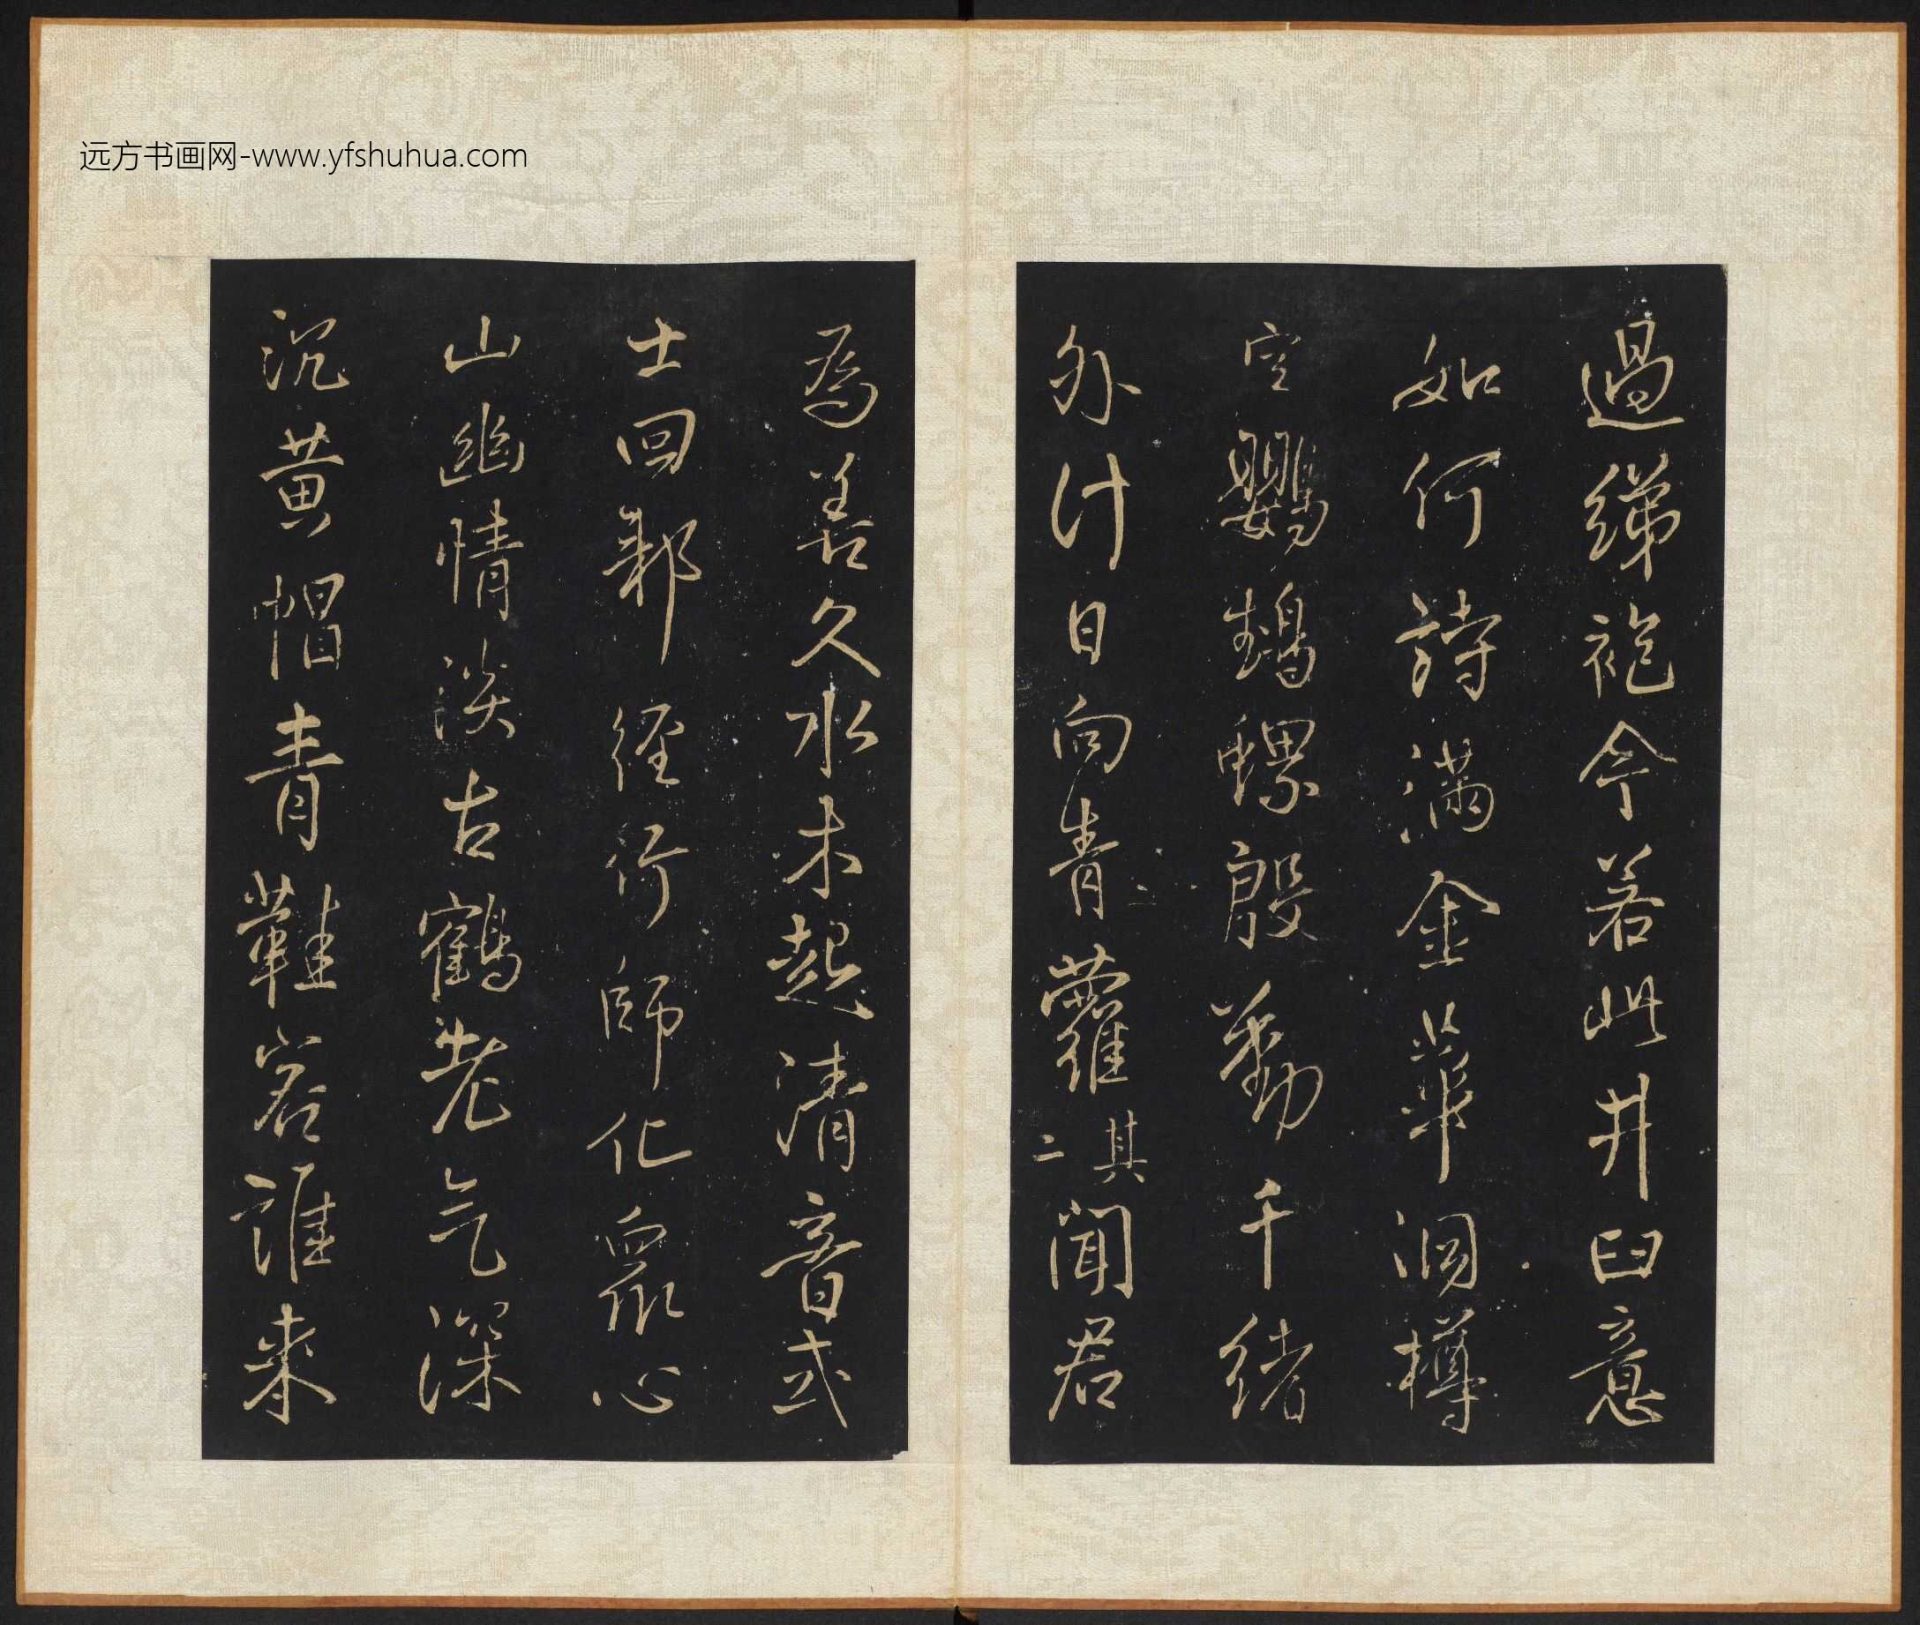 远方书画网-www.yfshuhua.com
過綈袍今若此井臼意
如何詩滿金華洞樽
空鸚鵡螺殷勤千緒
外計日向青蘿其二聞君
為善久水木起清音式
士回鄰徑行師化眾心
山幽情淡古鶴老气深
沉黃帽青鞋客誰來